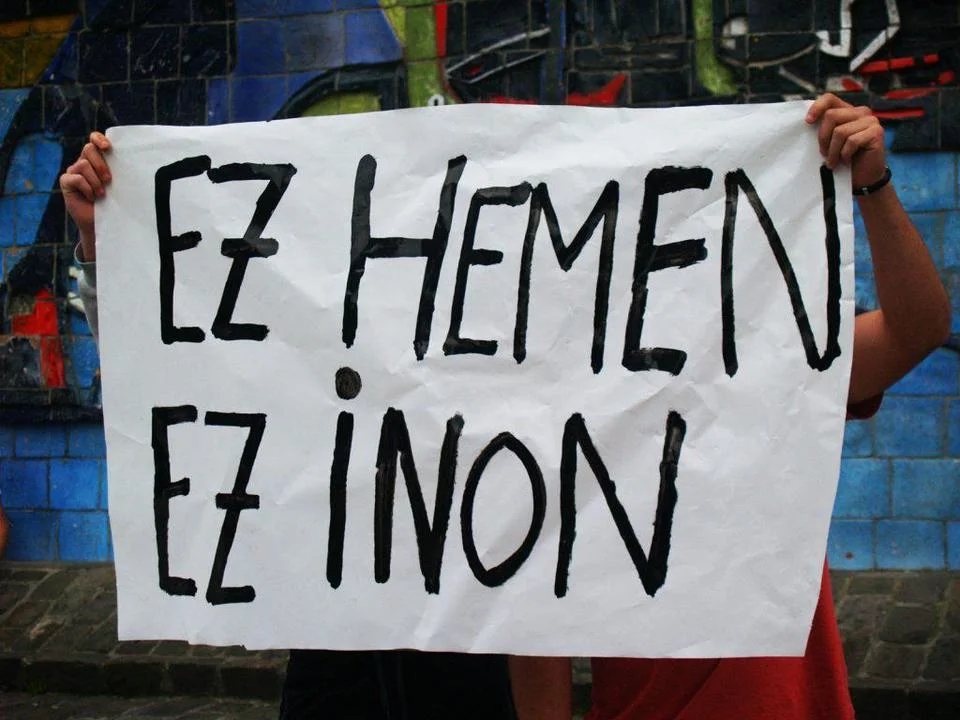 EZ HEMEN
EZ iNON